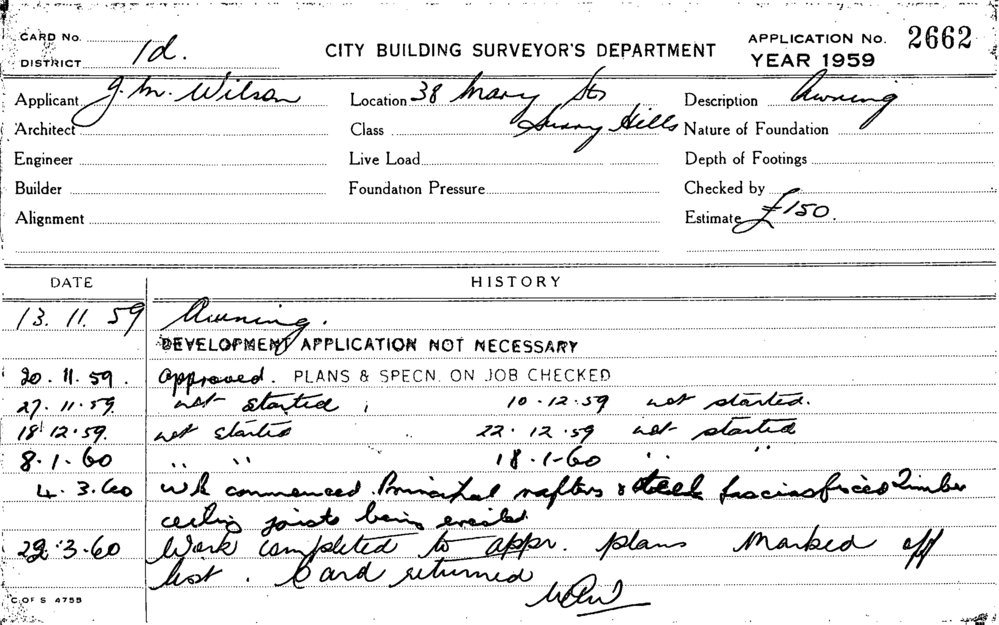 CARD No.
DISTRICT 1d.
CITY BUILDING SURVEYOR'S DEPARTMENT
APPLICATION No. 2662
YEAR 1959
Applicant J. M. Wilson Location 38 Mary St Description Awning
Architect Class Surry Hills Nature of Foundation
Engineer Live Load Depth of Footings
Builder Foundation Pressure Checked by
Alignment Estimate £150.
DATE HISTORY
13. 11. 59 Awning.
DEVELOPMENT APPLICATION NOT NECESSARY
20. 11. 59. approved. PLANS & SPECN. ON JOB CHECKED
27. 11. 59. not started ; 10. 12. 59 not started.
18. 12. 59. not started 22. 12. 59 not started
8. 1. 60 " " 18. 1. 60 " "
4. 3. 60 wk commenced. Principal rafters & fascias Timber
ceiling joists being erected
22. 3. 60 Work completed to appr. plans Marked off
list. Card returned
C OF S 4755